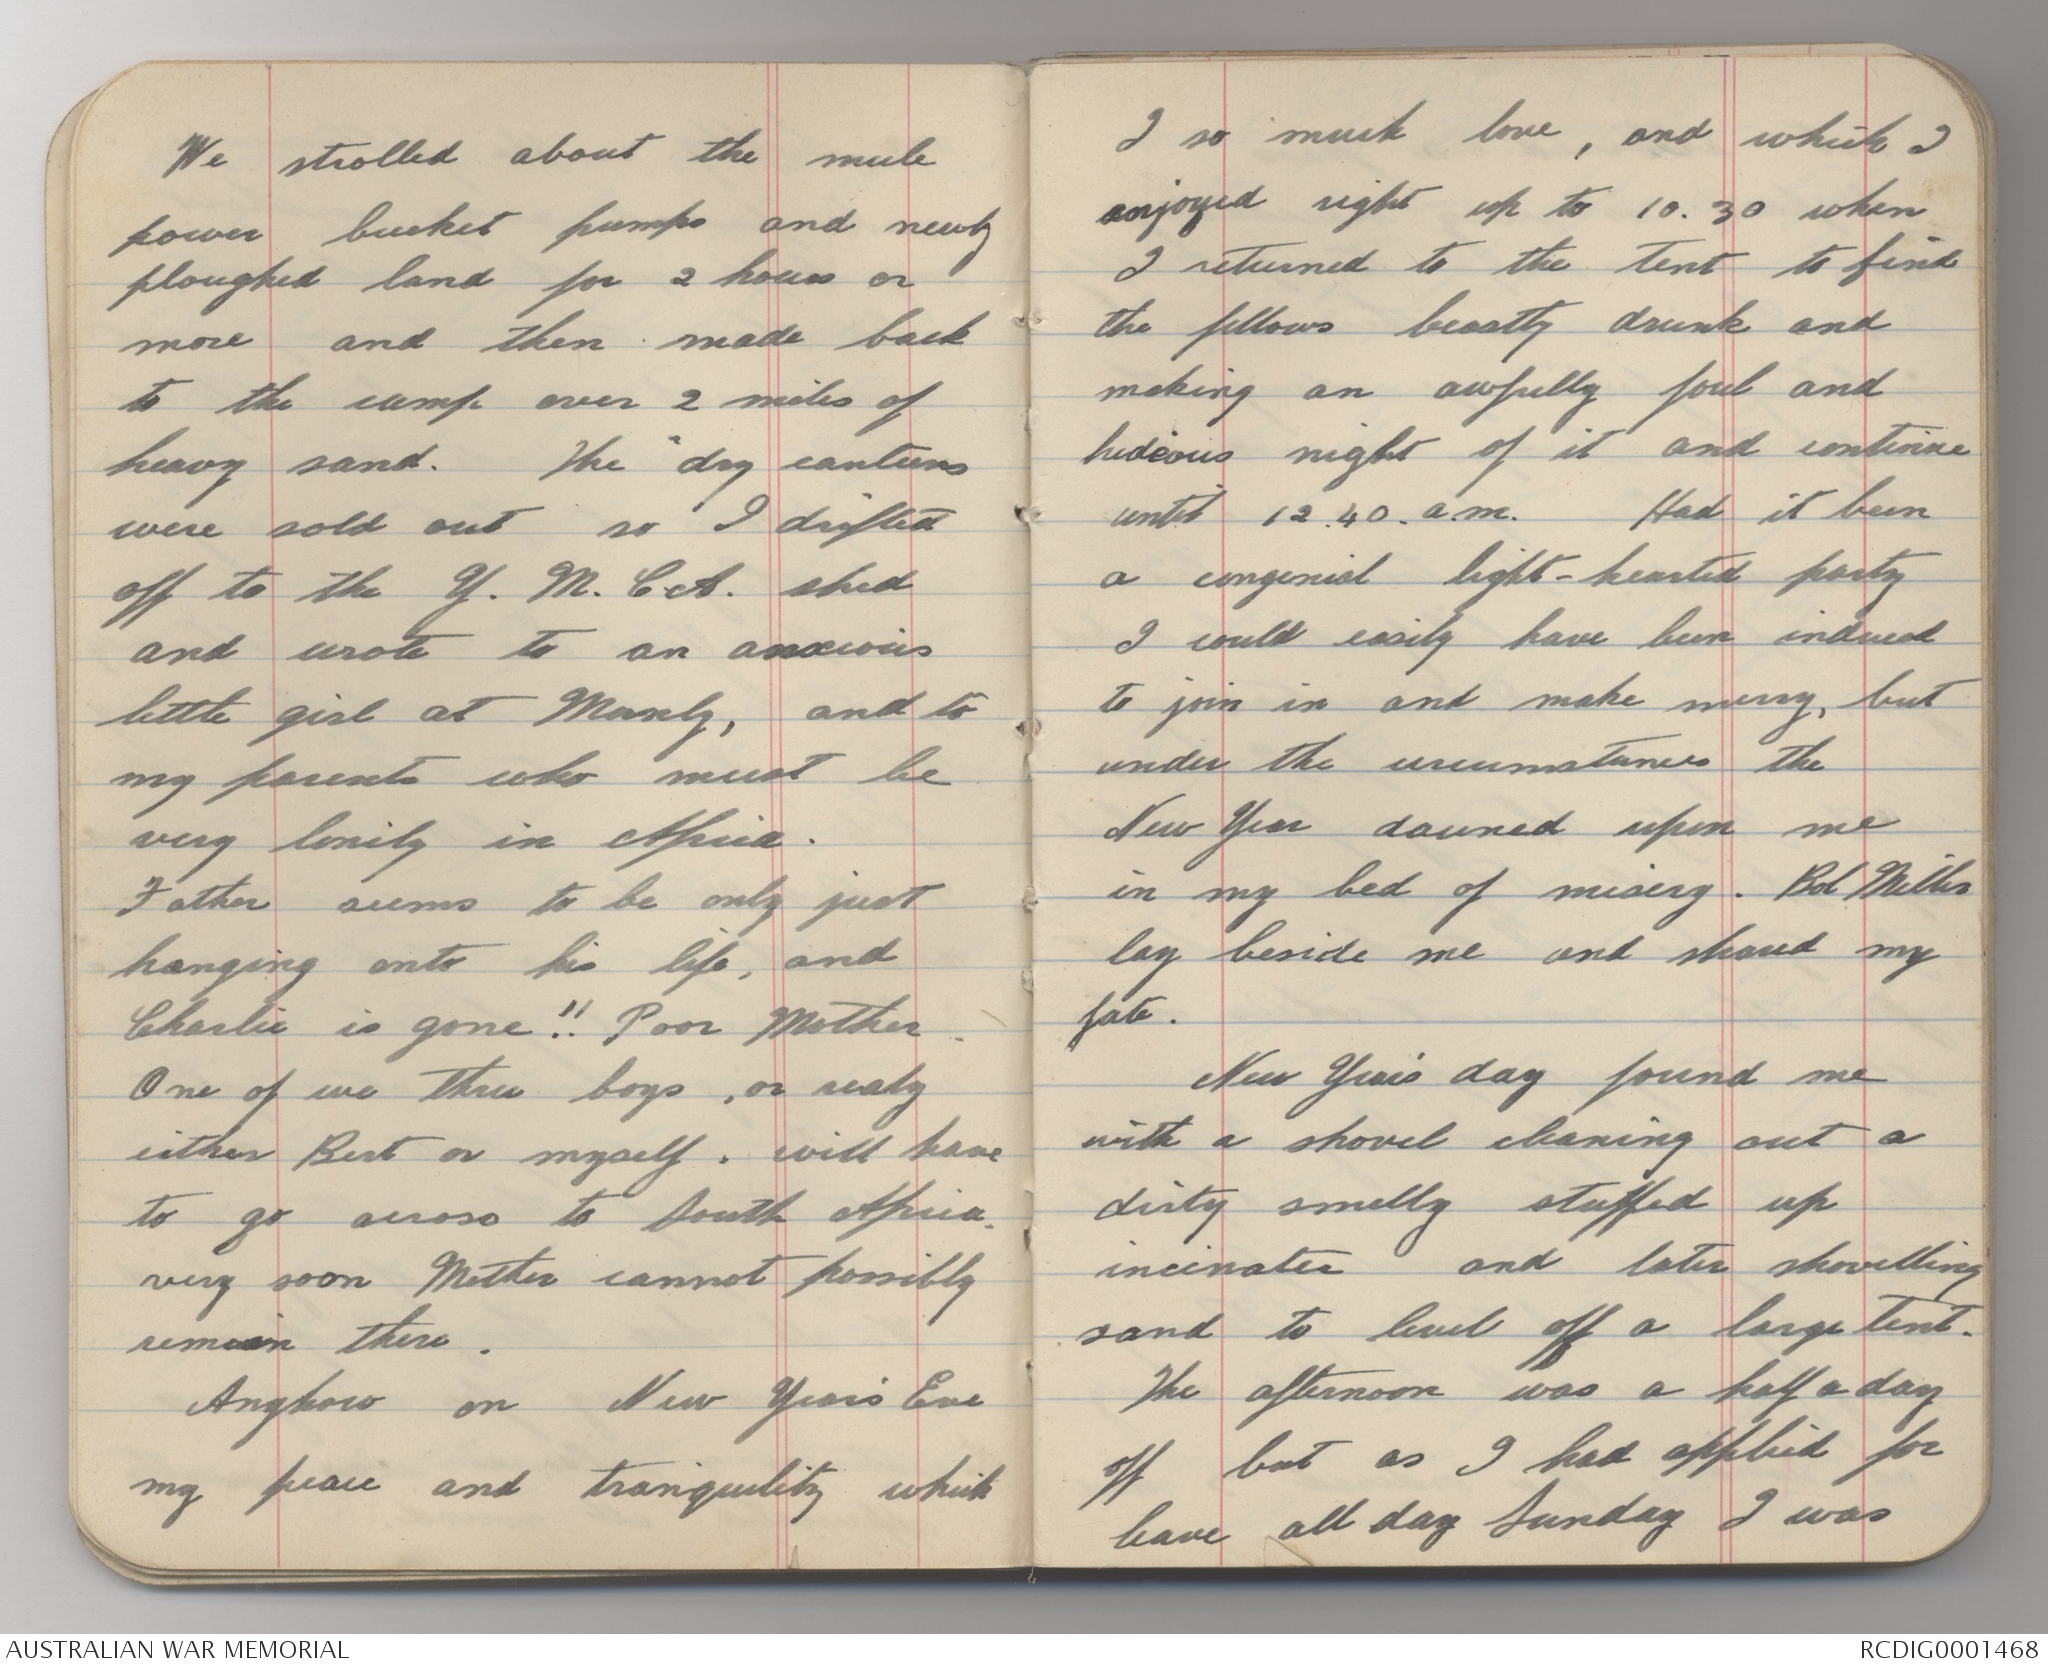 We strolled about the mule
power bucket pumps and newly
ploughed land for 2 hours or
more and then made back
to the camp over 2 miles of
heavy sand. The "dry canteens
were sold out so I drifted
off to the Y. M. C. A. shed
and wrote to an anxious
little girl at Manly, and to
my parents who must be
very lonely in Africa.
Father seems to be only just
hanging onto his life, and
Charlie is gone!! Poor Mother.
One of we three boys, or realy
either Bert or myself. will have
to go across to South Africa.
very soon Mother cannot possibly
remain there.
Anyhow on New Year's Eve
my peace and tranquility which
I so much love, and which I
enjoyed right up to 10.30 when
I returned to the tent to find
the fellows beastly drunk and
making an awfully foul and
hideous night of it and continue
until 12.40. a.m. Had it been
a congenial light-hearted party
I could easily have been induced
to join in and make merry, but
under the circumstances the
New Year dawned upon me
in my bed of misery. Bob Miller
lay beside me and shared my
fate.
New Year's day found me
with a shovel cleaning out a
dirty smelly stuffed up
incinater and later shovelling
sand to level off a large tent.
The afternoon was a half a day
off but as I had applied for
leave all day Sunday I was
AUSTRALIAN WAR MEMORIAL
RCDIG0001468